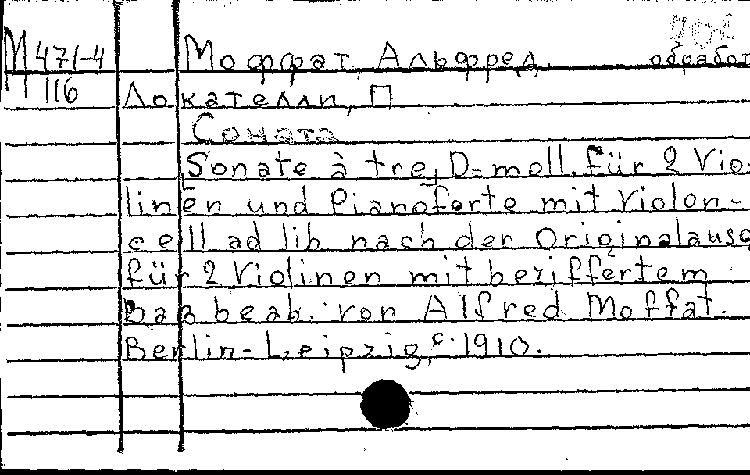 М 471-4 Моффат, Альфред. обработ
116 Локателли, П
Соната
Sonate à tre, D-moll, für 2 Vio-
linen und Pianoforte mit Violon-
cell ad lib. nach der Originalausg
für 2 Violinen mit beziffertem
baß beab. von Alfred Moffat.
Berlin-Leipzig, c. 1910.